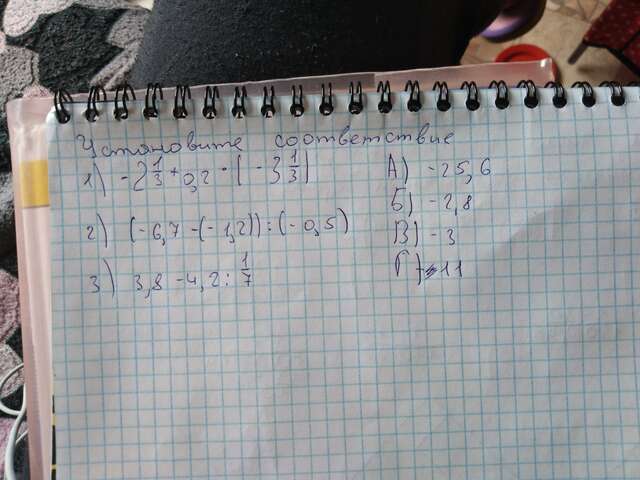 Установите соответствие
1) -2 1/3 + 0,2 · (-3 1/3) А) -25,6
Б) -2,8
2) (-6,7 - (-1,2)) : (-0,5) В) -3
3) 3,8 - 4,2 : 1/7 Г) 11